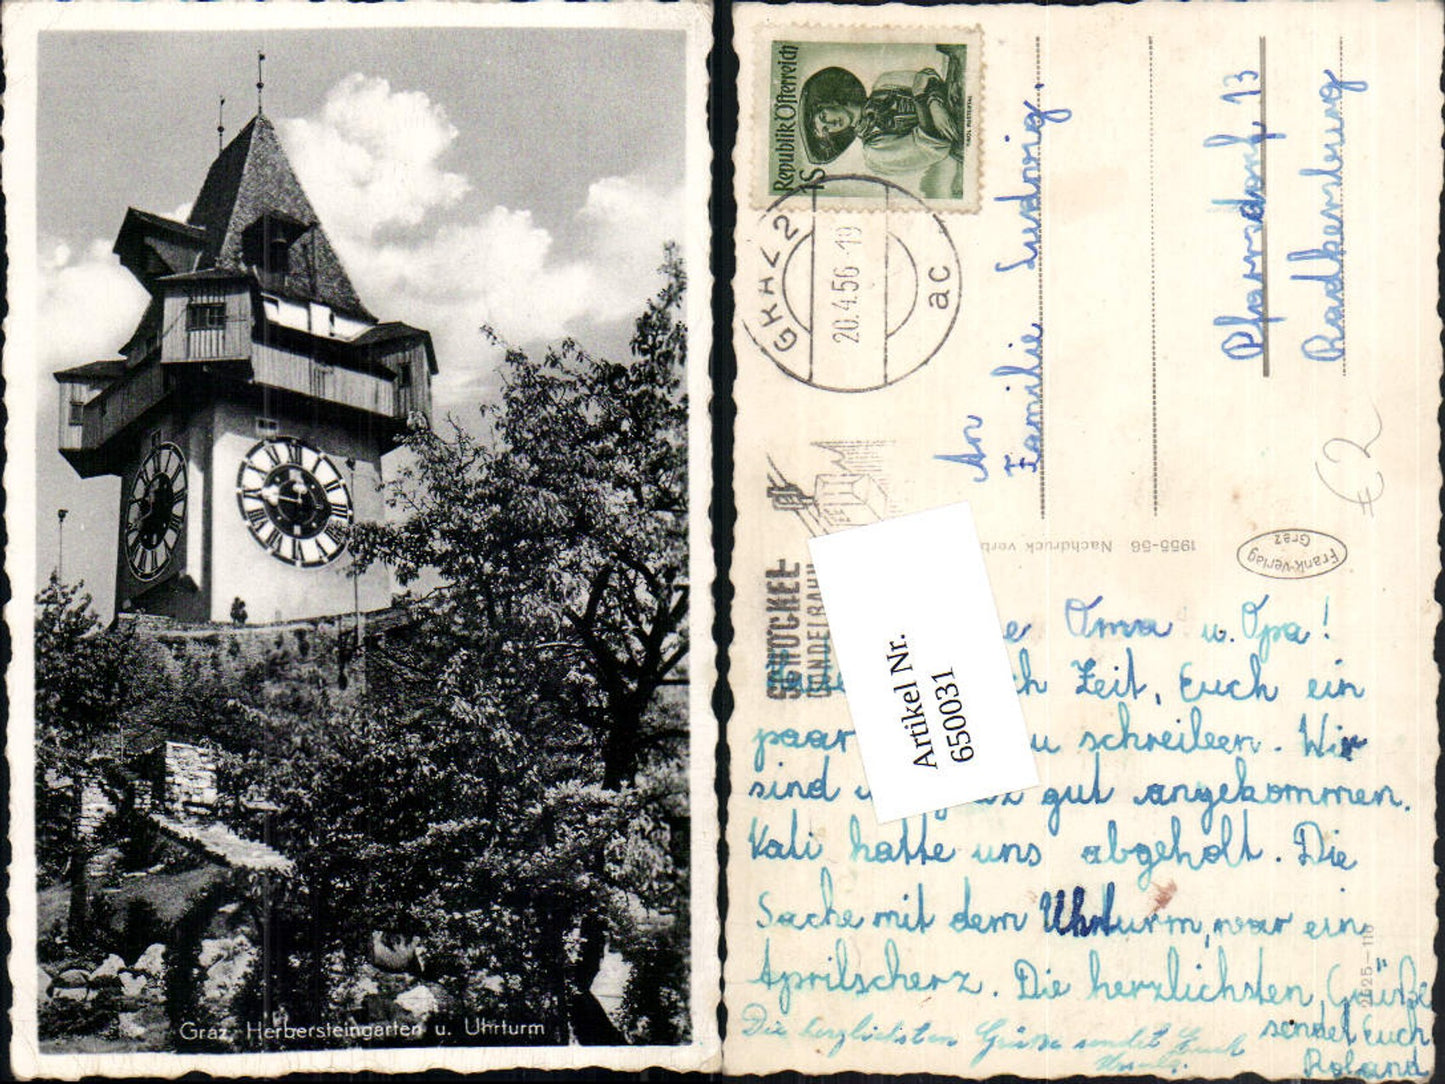 Graz, Herbersteingarten u. Uhrturm
Republik Österreich
1S
TIROL PUSTERTAL
GRAZ 2
20.4.56-19
ac
SCHÖCKEL
An
Familie Ludwig.
Pfarrdorf 13
Radkersburg
€2
1955-56 Nachdruck verb
Frank-Verlag
Graz
Artikel Nr.
650031
e Oma u. Opa!
ch Zeit, Euch ein
paar zu schreiben. Wir
sind gut angekommen.
Vati hatte uns abgeholt. Die
Sache mit dem Uhrturm, war ein
Aprilscherz. Die herzlichsten Grüße
sendet Euch
Roland
Die herzlichsten Grüße sendet Euch
2625-116